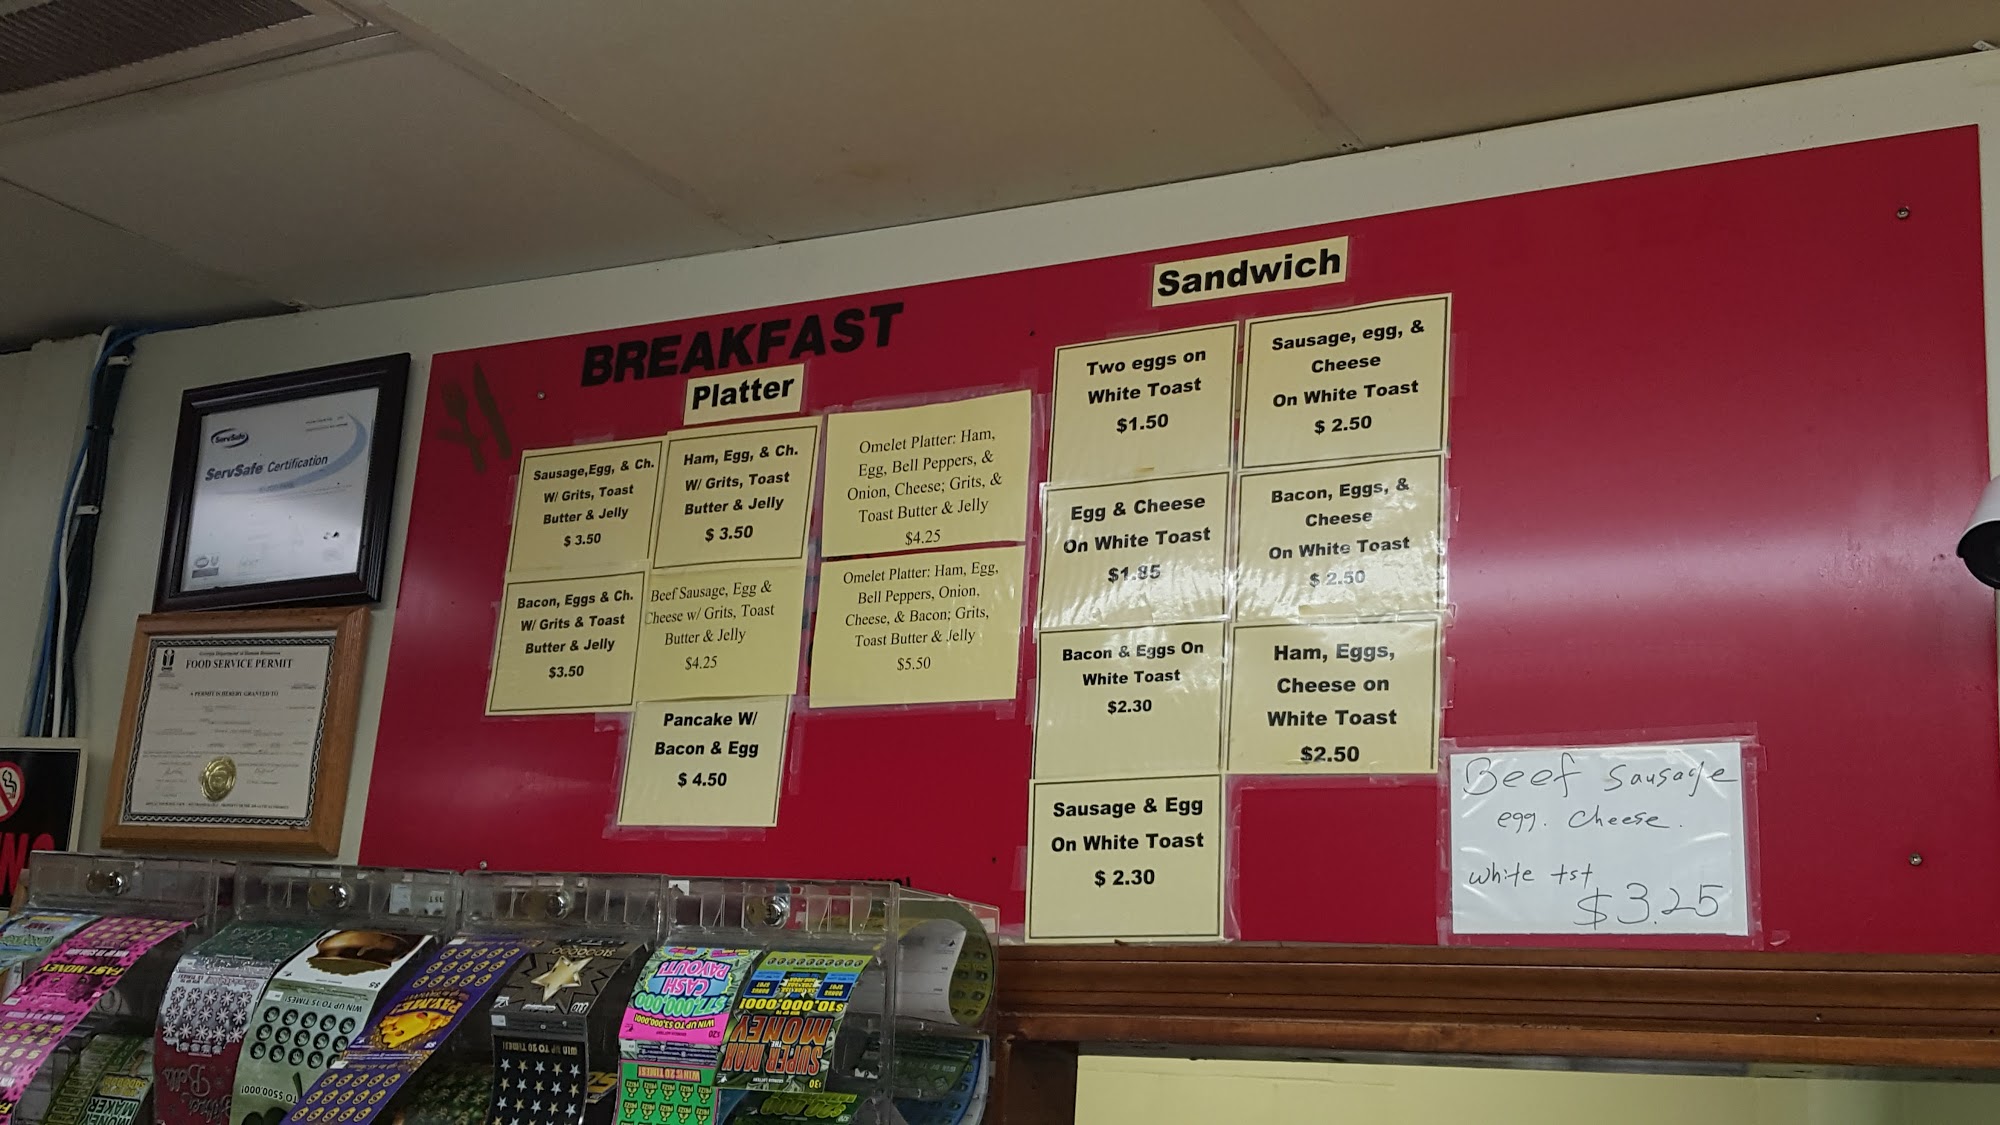 ServSafe
ServSafe Certification
Georgia Department of Human Resources
FOOD SERVICE PERMIT
A PERMIT IS HEREBY GRANTED TO
BREAKFAST
Platter
Sausage,Egg, & Ch.
W/ Grits, Toast
Butter & Jelly
$ 3.50
Ham, Egg, & Ch.
W/ Grits, Toast
Butter & Jelly
$ 3.50
Omelet Platter: Ham,
Egg, Bell Peppers, &
Onion, Cheese; Grits, &
Toast Butter & Jelly
$4.25
Bacon, Eggs & Ch.
W/ Grits & Toast
Butter & Jelly
$3.50
Beef Sausage, Egg &
Cheese w/ Grits, Toast
Butter & Jelly
$4.25
Omelet Platter: Ham, Egg,
Bell Peppers, Onion,
Cheese, & Bacon; Grits,
Toast Butter & Jelly
$5.50
Pancake W/
Bacon & Egg
$ 4.50
Sandwich
Two eggs on
White Toast
$1.50
Sausage, egg, &
Cheese
On White Toast
$ 2.50
Egg & Cheese
On White Toast
$1.85
Bacon, Eggs, &
Cheese
On White Toast
$ 2.50
Bacon & Eggs On
White Toast
$2.30
Ham, Eggs,
Cheese on
White Toast
$2.50
Sausage & Egg
On White Toast
$ 2.30
Beef Sausage
egg. cheese.
white tst
$3.25
FAST MONEY
WIN UP TO 15 TIMES!
$5
TO $500,000!
WIN UP TO 20 TIMES!
$7,000,000
CASH
PAYOUT!
WIN UP TO $3,000,000!
$20
WIN 20 TIMES!
$10,000,000!
SUPER MAX
THE
MONEY
$30
MONEY
MAKER